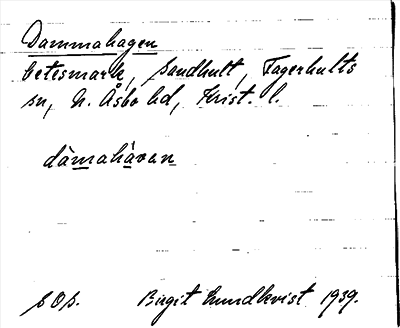 Dammahagen
betesmark, Sandhult, Fagerhults
sn, N. Åsbo hd, Krist. l.
dàmahàvan
SOS. Birgit Lundkvist 1939.